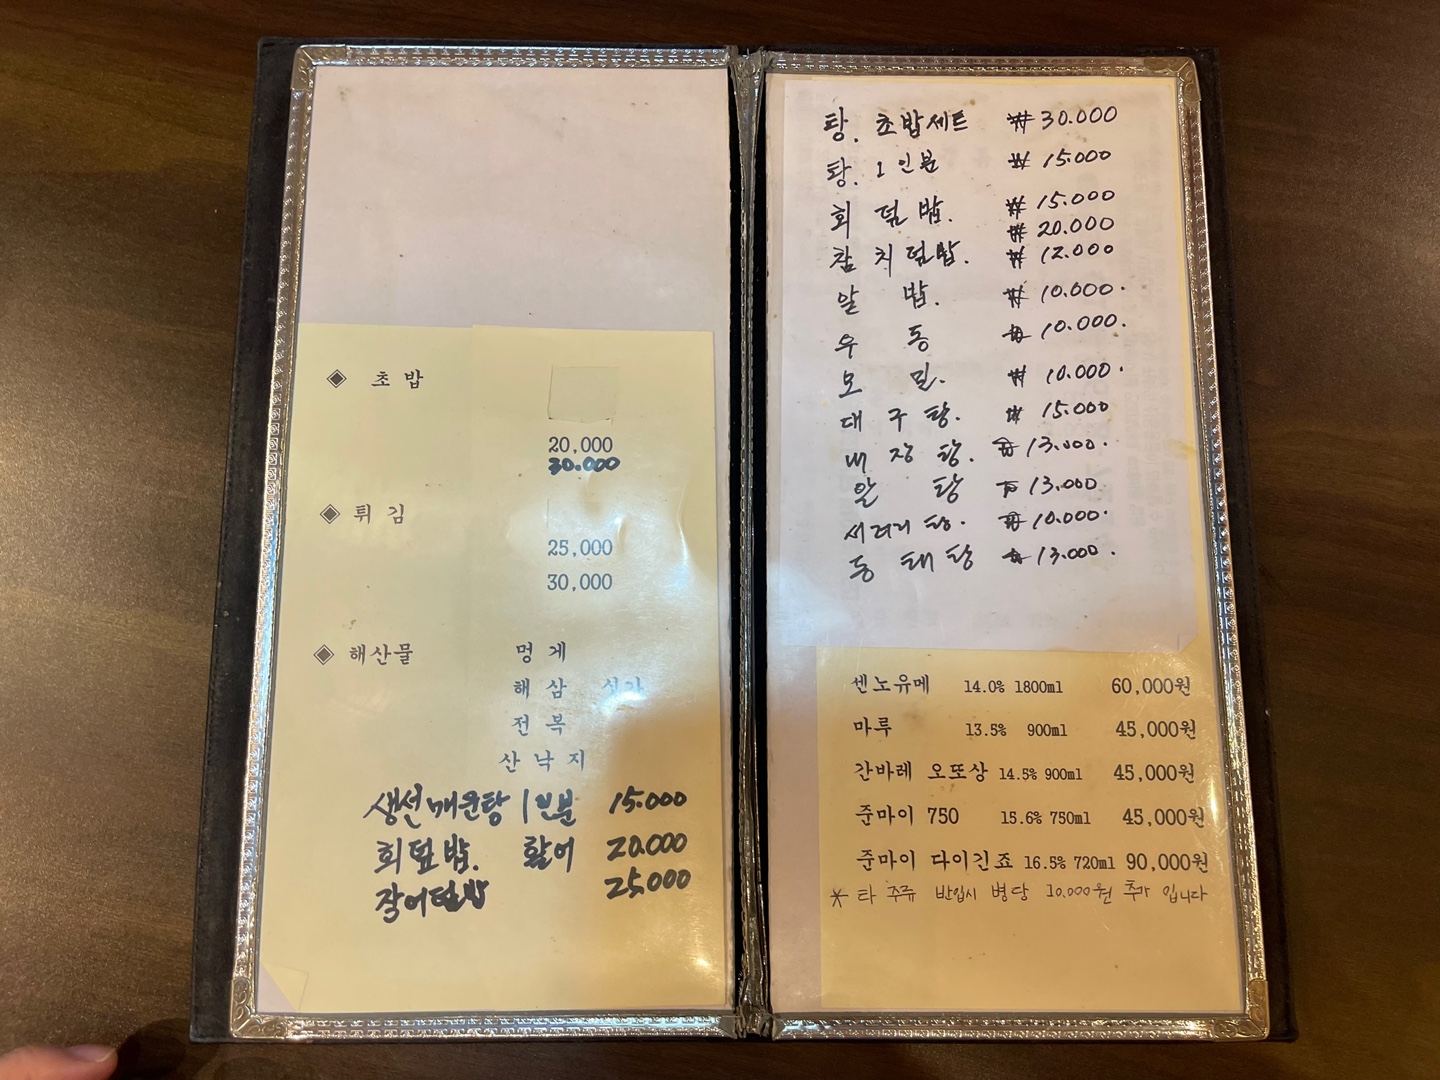 ◈ 초 밥
20,000
30.000
◈ 튀 김
25,000
30,000
◈ 해산물 멍 게
해 삼 시가
전 복
산 낙 지
생선매운탕 1인분 15.000
회덮밥. 활어 20.000
장어덮밥 25,000
탕. 초밥세트 ₩ 30.000
탕. 1 인분 ₩ 15.000
회 덮 밥. ₩ 15.000
₩ 20.000
참 치 덮 밥. ₩ 12.000
알 밥. ₩ 10.000.
우 동 ₩ 10.000.
모 밀. ₩ 10.000.
대 구 탕. ₩ 15.000
내 장 탕. ₩ 13.000.
알 탕 ₩ 13.000
서더리 탕. ₩ 10.000.
동 태 탕 ₩ 13.000.
센노유메 14.0% 1800ml 60,000원
마루 13.5% 900ml 45,000원
간바레 오또상 14.5% 900ml 45,000원
준마이 750 15.6% 750ml 45,000원
준마이 다이긴죠 16.5% 720ml 90,000원
* 타 주류 반입시 병당 10.000원 추가 입니다